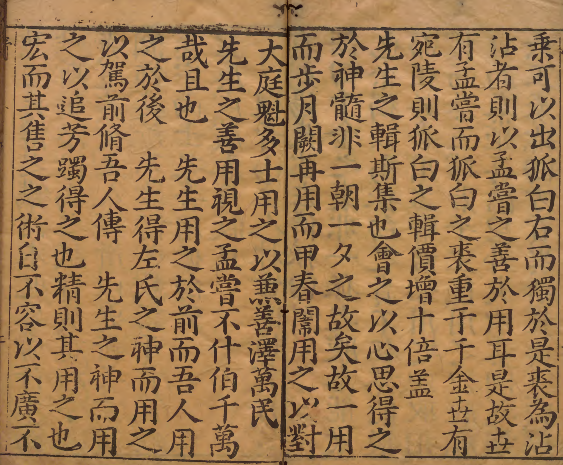 乗可以出狐白右而獨於是裘為沾
沾者則以孟嘗之善於用耳是故世
有孟嘗而狐白之裘重于千金世有
宛陵則狐白之輯價增十倍盖
先生之輯斯集也會之以心思得之
於神髓非一朝一夕之故矣故一用
而步月闕再用而甲春闈用之以對
大庭魁多士用之以兼善澤萬民
先生之善用視之孟嘗不什伯千萬
哉且也 先生用之於前而吾人用
之於後 先生得左氏之神而用之
以駕前脩吾人傳 先生之神而用
之以追芳躅得之也精則其用之也
宏而其售之之術自不容以不廣不